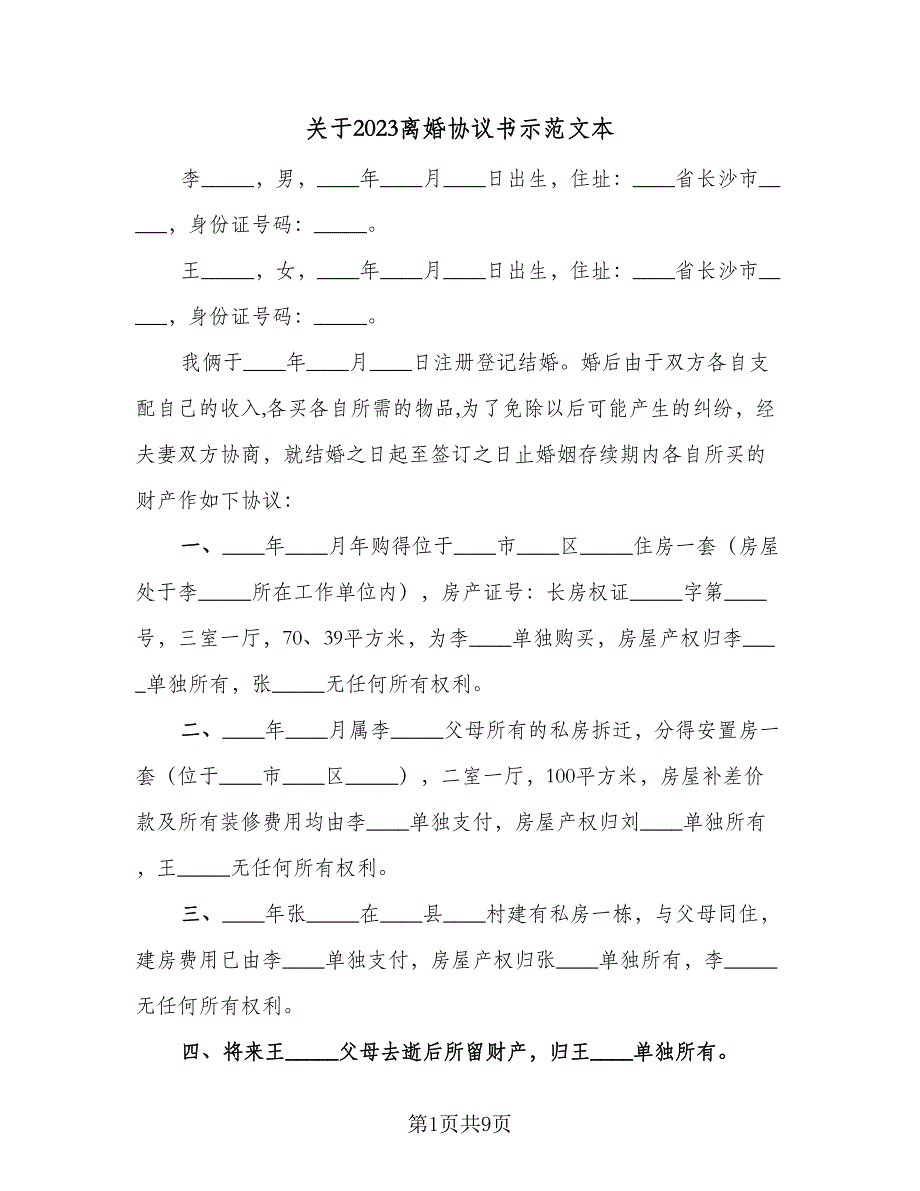 关于2023离婚协议书示范文本
李_____，男，____年____月____日出生，住址：____省长沙市__
___，身份证号码：_____。
王_____，女，____年____月____日出生，住址：____省长沙市__
___，身份证号码：_____。
我俩于____年____月____日注册登记结婚。婚后由于双方各自支
配自己的收入,各买各自所需的物品,为了免除以后可能产生的纠纷，经
夫妻双方协商，就结婚之日起至签订之日止婚姻存续期内各自所买的
财产作如下协议：
一、____年____月年购得位于____市____区_____住房一套（房屋
处于李_____所在工作单位内），房产证号：长房权证_____字第____
号，三室一厅，70、39平方米，为李____单独购买，房屋产权归李___
_单独所有，张_____无任何所有权利。
二、____年____月属李_____父母所有的私房拆迁，分得安置房一
套（位于____市____区_____），二室一厅，100平方米，房屋补差价
款及所有装修费用均由李____单独支付，房屋产权归刘____单独所有
，王_____无任何所有权利。
三、____年张_____在____县____村建有私房一栋，与父母同住，
建房费用已由李____单独支付，房屋产权归张____单独所有，李_____
无任何所有权利。
四、将来王_____父母去逝后所留财产，归王____单独所有。
第1页共9页